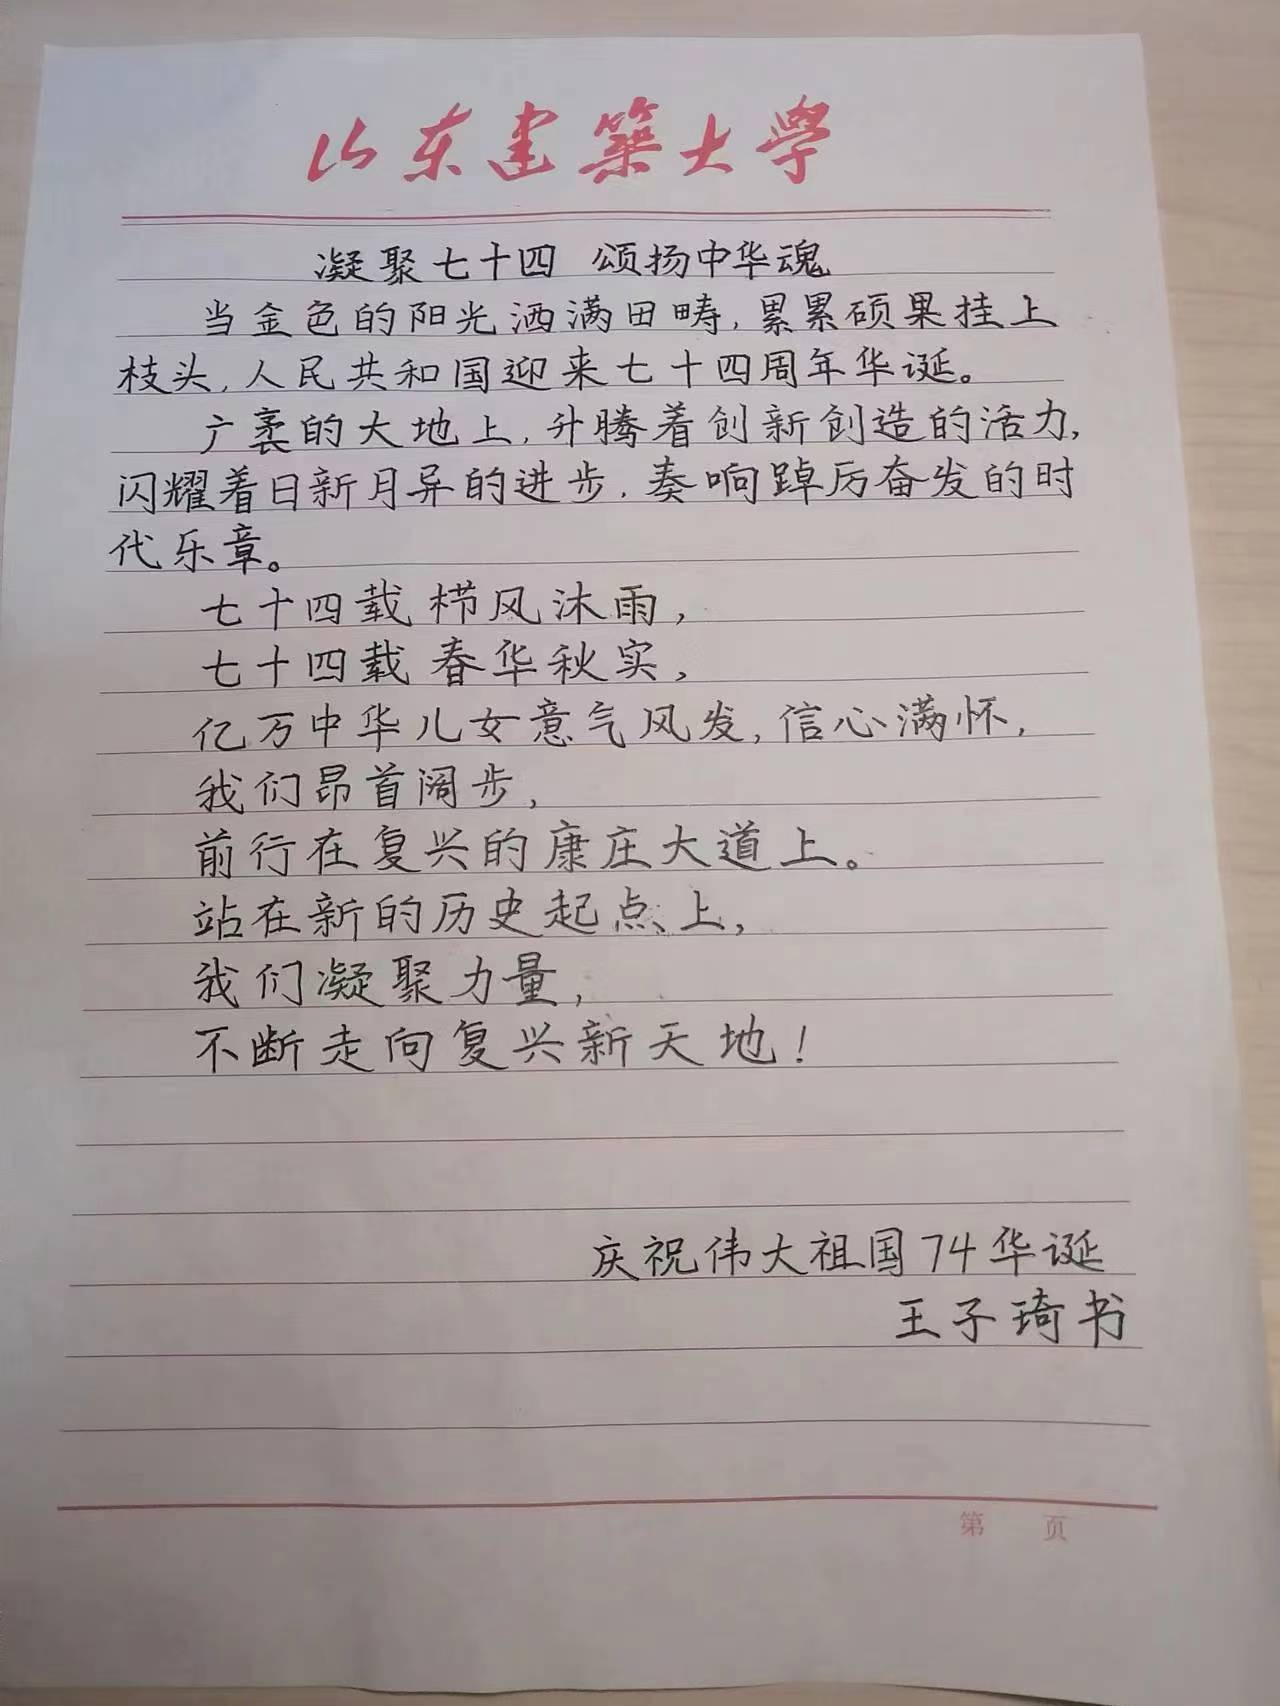 山东建築大學
凝聚七十四 颂扬中华魂
当金色的阳光洒满田畴,累累硕果挂上
枝头,人民共和国迎来七十四周年华诞。
广袤的大地上,升腾着创新创造的活力,
闪耀着日新月异的进步,奏响踔厉奋发的时
代乐章。
七十四载 栉风沐雨,
七十四载 春华秋实,
亿万中华儿女意气风发,信心满怀,
我们昂首阔步,
前行在复兴的康庄大道上。
站在新的历史起点上,
我们凝聚力量,
不断走向复兴新天地!
庆祝伟大祖国74华诞
王子琦书
第 页